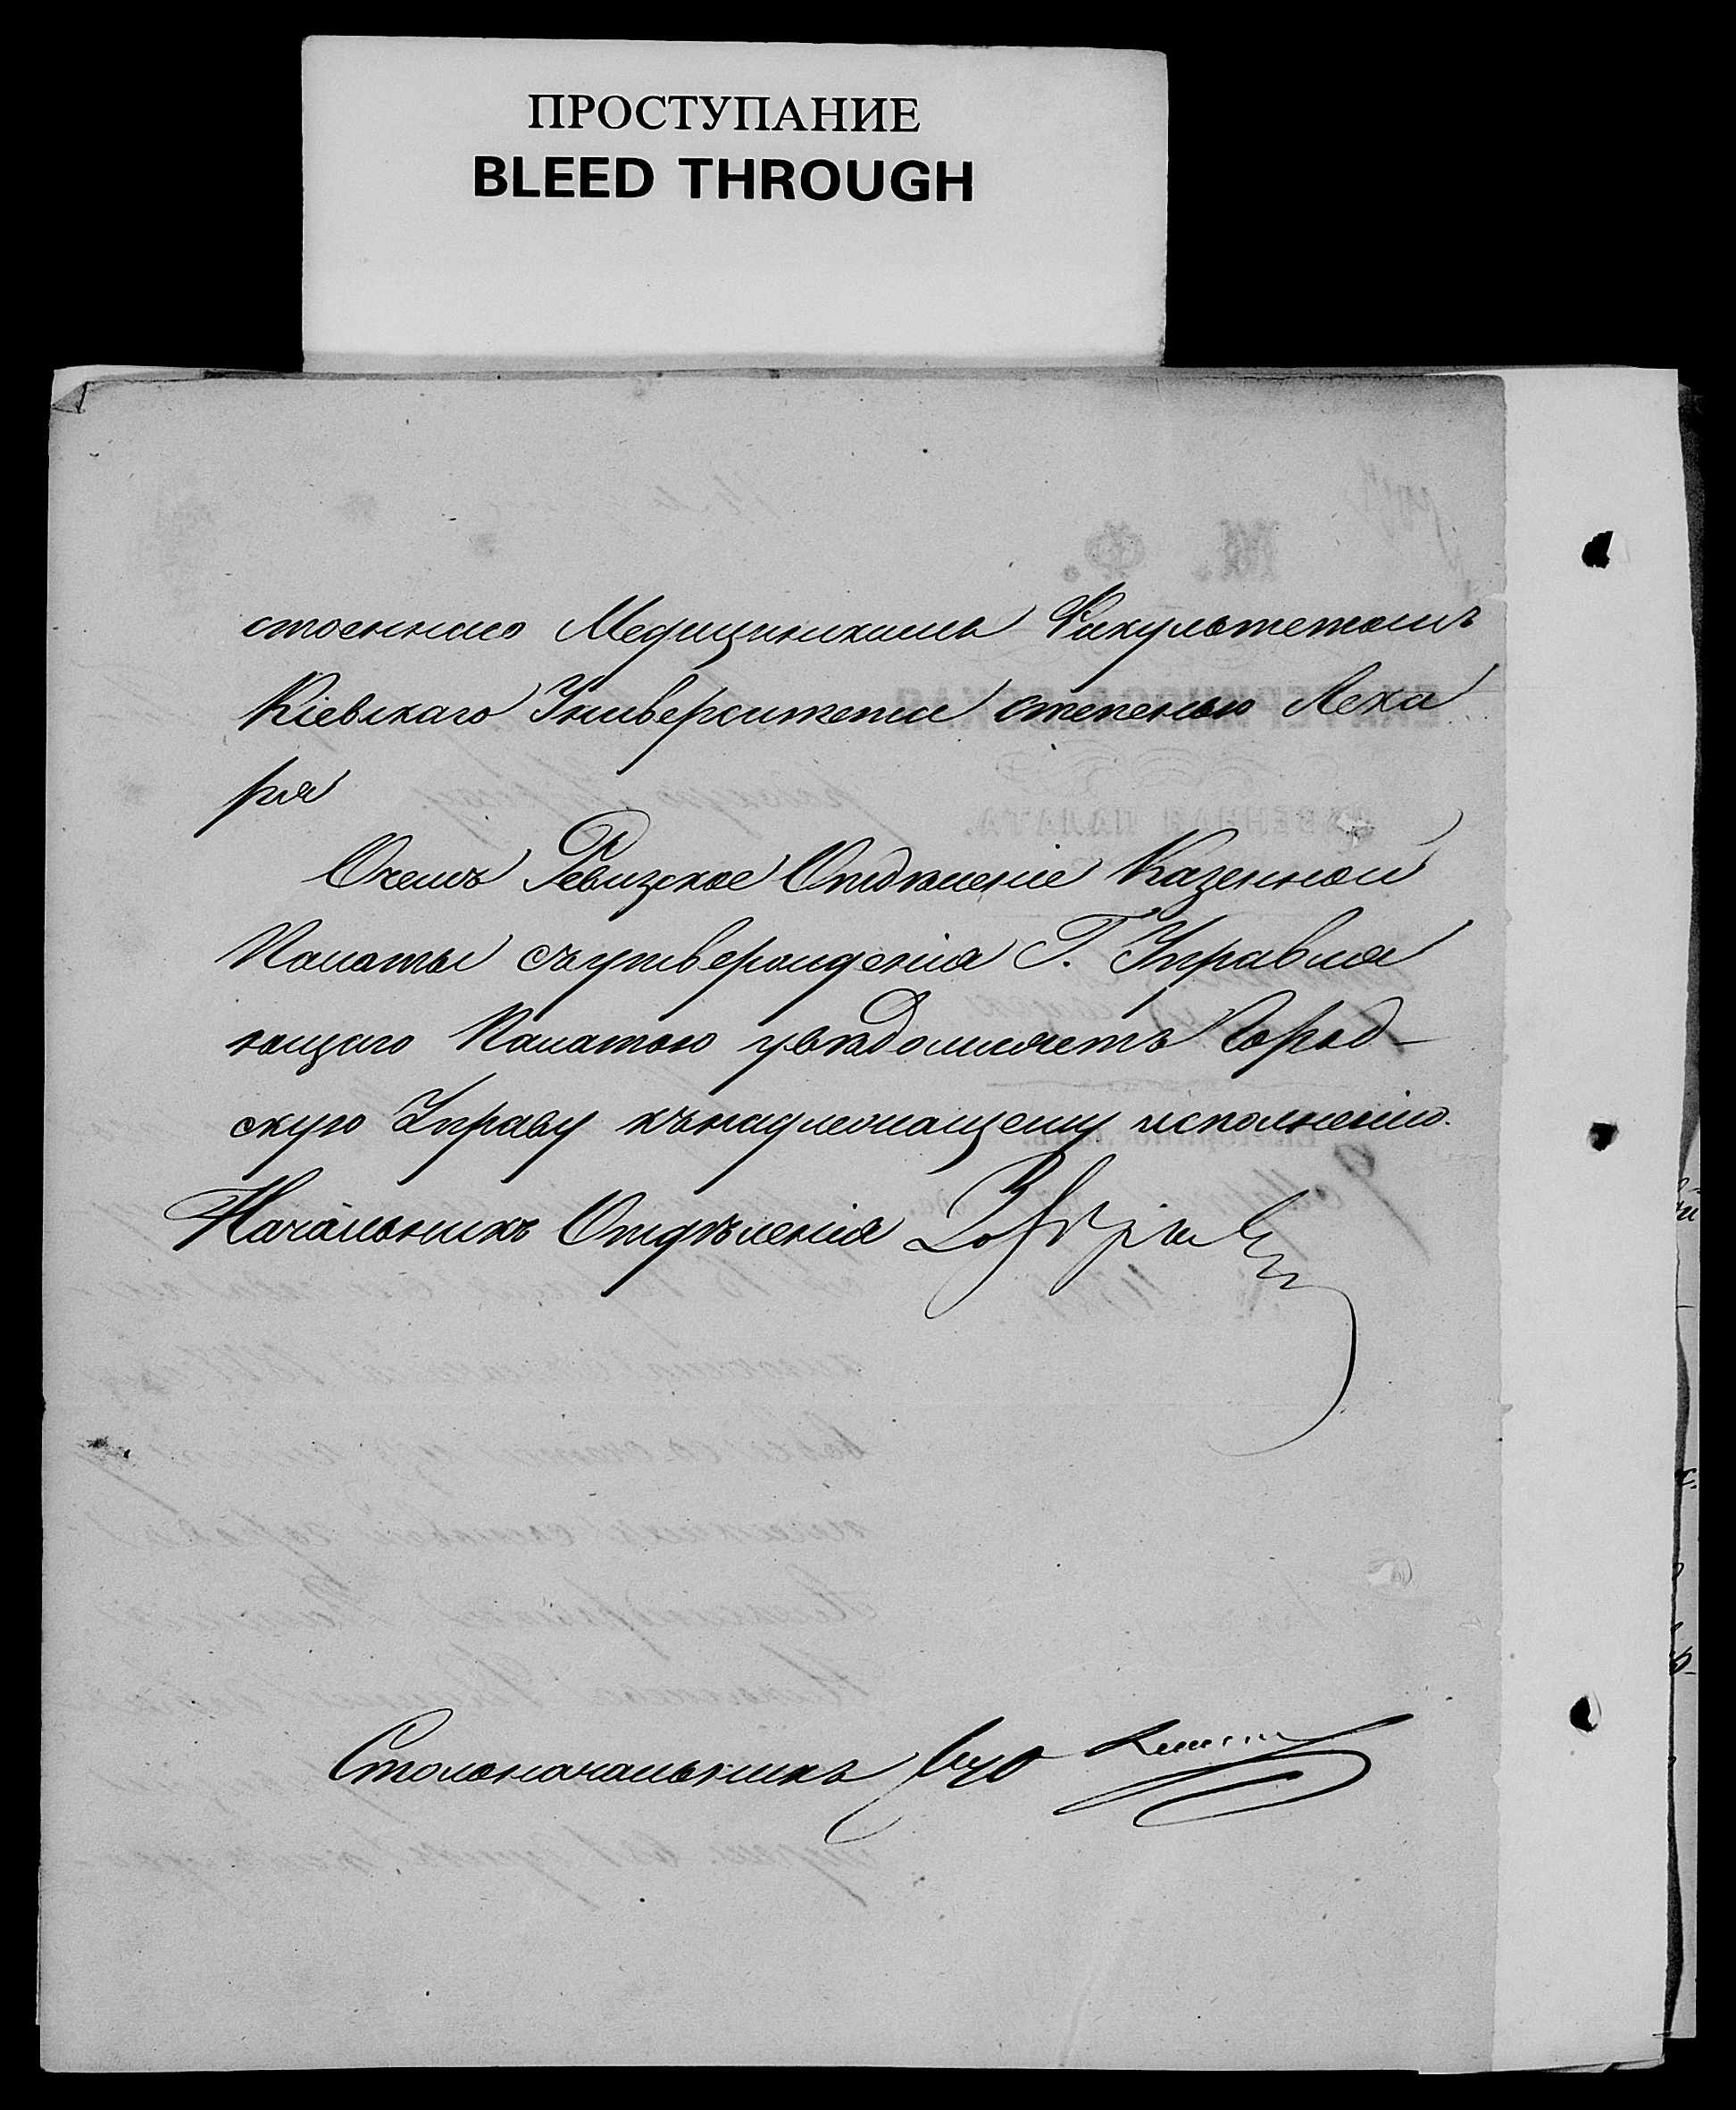 ПРОСТУПАНИЕ
BLEED THROUGH
стоеннаго Медицинскимъ Факультетомъ
Кіевскаго Университета степенью Лека
ря
О чемъ Ревизское Отдѣленіе Казенной
Палаты съ утвержденія Г. Управля
ющаго Палатою увѣдомляетъ Город-
скую Управу къ надлежащему исполненію.
Начальникъ Отдѣленія
Столоначальникъ